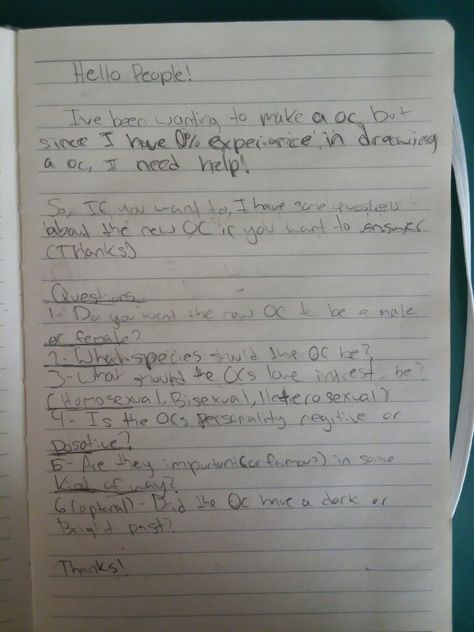 Hello People!
I've been wanting to make a oc, but
since I have 0% experience in drawing
a oc, I need help!
So, If you want to, I have some questions
about the new OC if you want to answer
(Thanks!)
Questions
1- Do you want the new OC to be a male
or female?
2- Which species should the OC be?
3- What should the OCs love intrest be?
(Homosexual, Bisexual, Heterosexual)
4- Is the OCs personality negitive or
Posative?
5- Are they important (or famous) in some
kind of way?
6 (optional)- Did the OC have a dark or
Bright past?
Thanks!